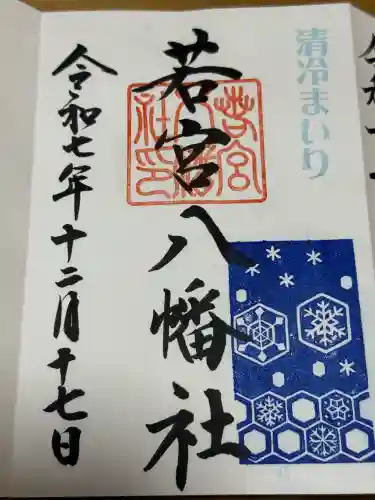 清冷まいり
若宮八幡社
令和七年十二月十七日